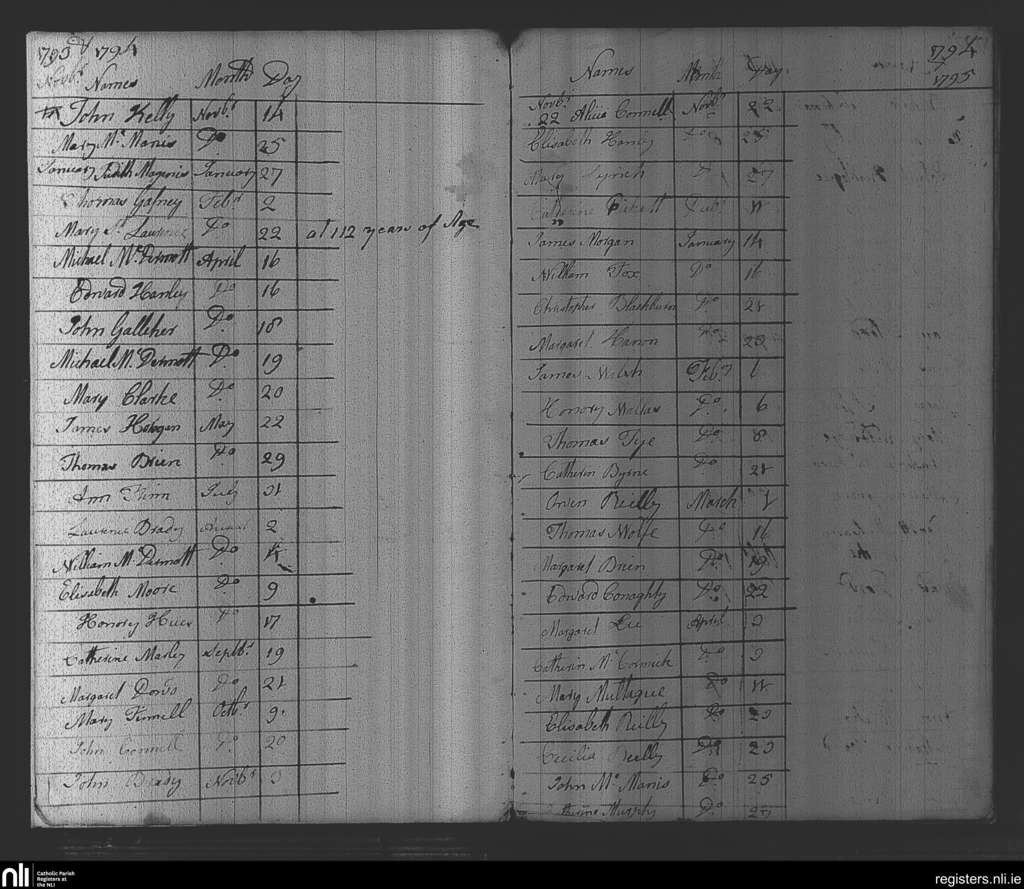 1793 & 1794
Novbr Names Month Day
John Kelly Novbr 14
Mary Mc Manis Do 25
January Judith Maginis January 27
Thomas Gafney Febr 2
Mary St Laurence Do 22 at 112 years of Age
Michael Mc Dermott April 16
Edward Hanley Do 16
John Galleher Do 18
Michael Mc Dermott Do 19
Mary Clarke Do 20
James Hologan May 22
Thomas Brien Do 29
Ann Flinn July 31
Laurence Brady August 2
William Mc Dermott Do 4
Elisabeth Moore Do 9
Honory Hues Do 17
Catherine Marley Septbr 19
Margaret Dowd Do 21
Mary Finnell Octbr 9
John Connell Do 20
John Brady Novbr 3
1794
1795
Names Month Day
Novbr
22 Alicia Connell Novbr 22
Elisabeth Hanley Do 25
Mary Lynch Do 27
Catherine Febr
James Morgan January 14
William Fox Do 16
Christopher Blackburn Do 21
Margaret Hanon Do 23
James Walsh Febry 1
Honory Wallas Do 6
Thomas Tye Do 8
Catherin Byrne Do 21
Owen Reilly March 1
Thomas Wolfe Do 16
Margaret Brien Do 19
Edward Conaghty Do 22
Margaret Lee April 3
Catherin Mc Cormick Do 3
Mary Multague Do 11
Elisabeth Reilly Do 23
Cecilia Reilly Do 23
John Mc Manis Do 25
Murphy Do 27
nli
Catholic Parish
Registers at
the NLI
registers.nli.ie